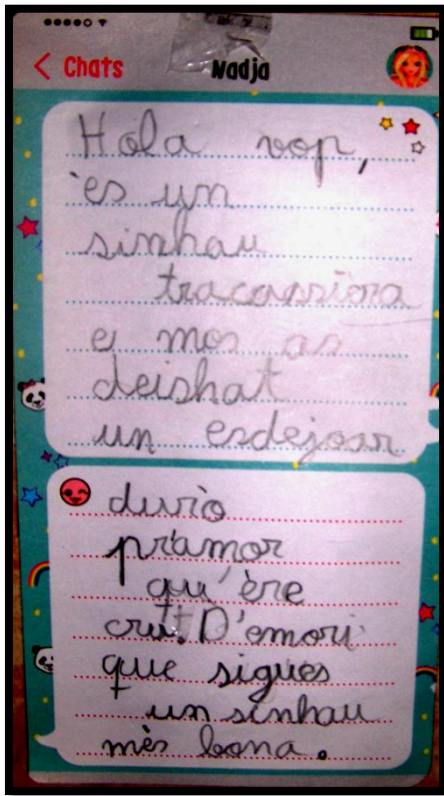 Chats
Nadja
Hola vop,
es un
sinhau
tracassiora
e mos as
deishat
un esdejoar
pr'amor
qu'ère
D'emori
que sigues
un sinhau
mès bona.